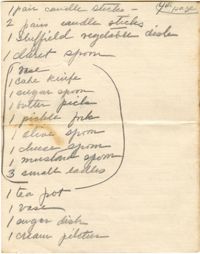 4th page
1 pair candle sticks -
2 pairs candle sticks
1 Sheffield vegetable dish
1 claret spoon
1 vase
1 cake knife
1 sugar spoon
1 butter pick
1 pickle fork
1 olive spoon
1 cheese spoon
1 mustard spoon
3 small ladles
1 tea pot -
1 vase
1 sugar dish
1 cream pitcher